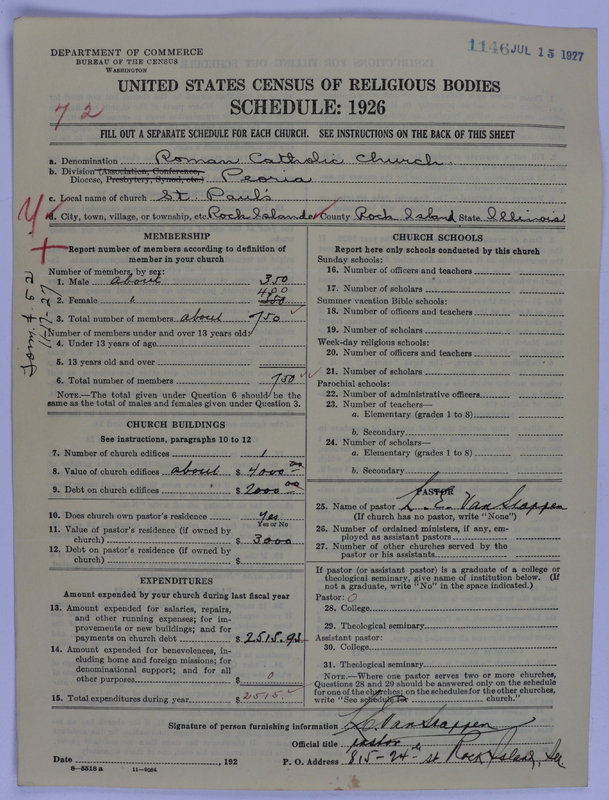 DEPARTMENT OF COMMERCE
BUREAU OF THE CENSUS
WASHINGTON
1146 JUL 15 1927
UNITED STATES CENSUS OF RELIGIOUS BODIES
SCHEDULE: 1926
72
FILL OUT A SEPARATE SCHEDULE FOR EACH CHURCH. SEE INSTRUCTIONS ON THE BACK OF THIS SHEET
a. Denomination Roman Catholic Church.
b. Division (Association, Conference, Diocese, Presbytery, Synod, etc.) Peoria
c. Local name of church St. Paul's
d. City, town, village, or township, etc. Rock Island County Rock Island State Illinois
MEMBERSHIP
Report number of members according to definition of
member in your church
Number of members, by sex:
1. Male about 350
400
2. Female " 350
3. Total number of members about 750
Number of members under and over 13 years old:
4. Under 13 years of age
5. 13 years old and over
6. Total number of members 750
NOTE.—The total given under Question 6 should be the
same as the total of males and females given under Question 3.
11-17-27
CHURCH BUILDINGS
See instructions, paragraphs 10 to 12
7. Number of church edifices 1
8. Value of church edifices about $ 4000.00
9. Debt on church edifices $ 2000.00
10. Does church own pastor's residence Yes
Yes or No
11. Value of pastor's residence (if owned by
church) $ 3000
12. Debt on pastor's residence (if owned by
church) $
EXPENDITURES
Amount expended by your church during last fiscal year
13. Amount expended for salaries, repairs,
and other running expenses; for im-
provements or new buildings; and for
payments on church debt $ 2515.93
14. Amount expended for benevolences, in-
cluding home and foreign missions; for
denominational support; and for all
other purposes $ 0
15. Total expenditures during year $ 2515
CHURCH SCHOOLS
Report here only schools conducted by this church
Sunday schools:
16. Number of officers and teachers
17. Number of scholars
Summer vacation Bible schools:
18. Number of officers and teachers
19. Number of scholars
Week-day religious schools:
20. Number of officers and teachers
21. Number of scholars
Parochial schools:
22. Number of administrative officers
23. Number of teachers—
a. Elementary (grades 1 to 8)
b. Secondary
24. Number of scholars—
a. Elementary (grades 1 to 8)
b. Secondary
PASTOR
25. Name of pastor L. E. Van Stappen
(If church has no pastor, write "None")
26. Number of ordained ministers, if any, em-
ployed as assistant pastors
27. Number of other churches served by the
pastor or his assistants
If pastor (or assistant pastor) is a graduate of a college or
theological seminary, give name of institution below. (If
not a graduate, write "No" in the space indicated.)
Pastor: 0
28. College
29. Theological seminary
Assistant pastor:
30. College
31. Theological seminary
NOTE.—Where one pastor serves two or more churches,
Questions 28 and 29 should be answered only on the schedule
for one of the churches; on the schedules for the other churches,
write "See schedule for church."
Signature of person furnishing information L. E. Van Stappen
Official title pastor
Date , 192 P. O. Address 815-24th st Rock Island, Ill.
8-5518a 11-9064